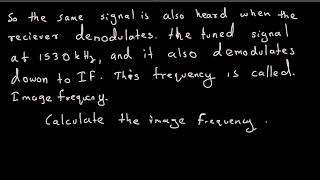 So the same signal is also heard when the
reciever demodulates. the tuned signal
at 1530 kHz, and it also demodulates
dowon to IF. This frequency is called.
Image frequcny.
Calculate the image frequency.